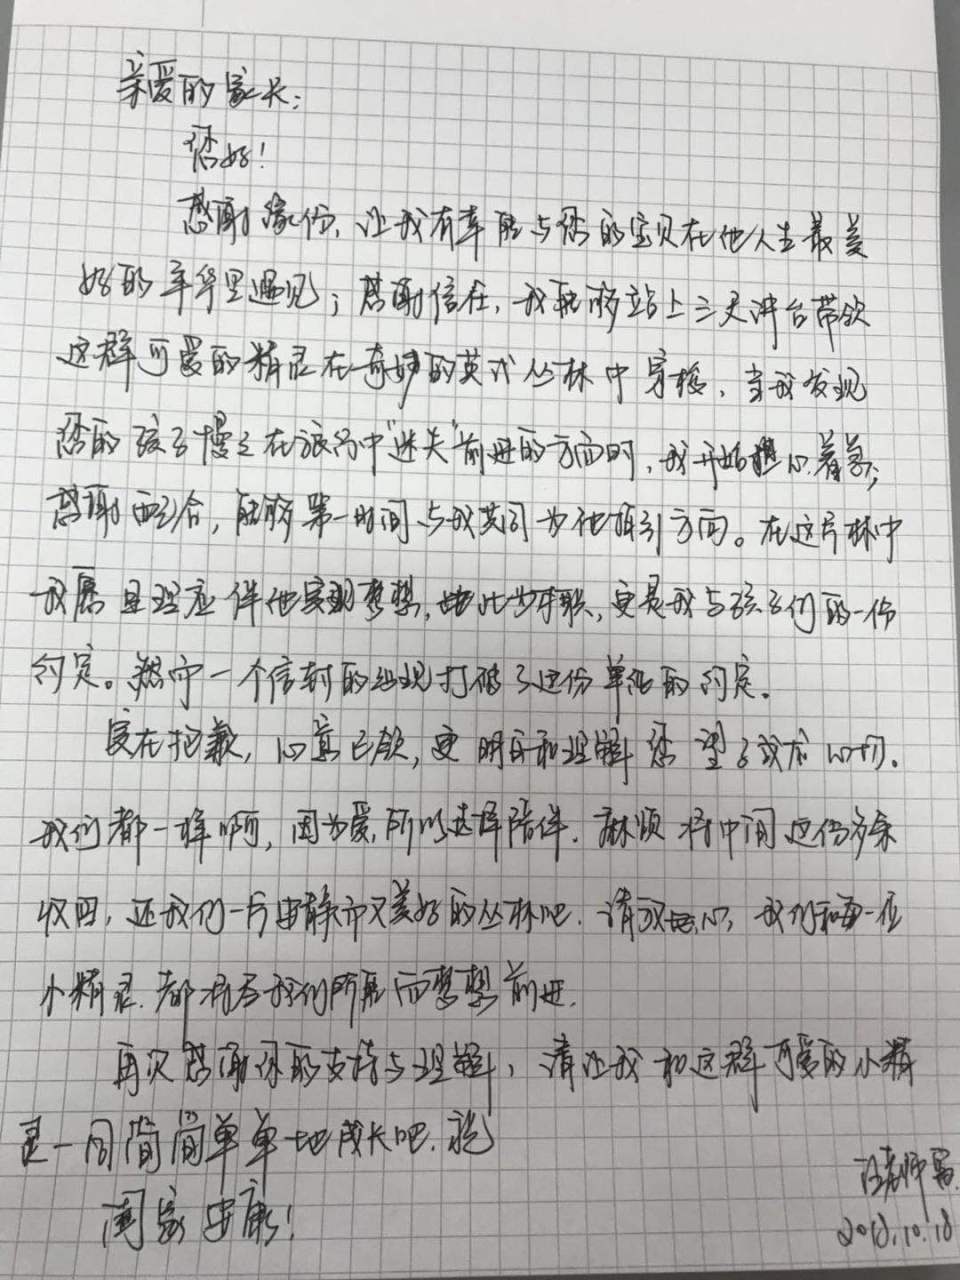 亲爱的家长：
您好！
感谢缘份，让我有幸能与您的宝贝在他人生最美
好的年华里遇见；感谢信任，我能够站上三尺讲台带领
这群可爱的精灵在奇妙的英式丛林中穿梭，当我发现
您的孩子慢慢在旅行中“迷失”前进的方向时，我开始担心.着急；
感谢配合，能够第一时间与我共同为他指引方向。在这片林中
我愿且理应伴他实现梦想，此为本职，更是我与孩子们的一份
约定。然而一个信封的出现打破了这份单纯的约定。
实在抱歉，心意已领，更明白和理解您望子成龙心切.
我们都一样啊，因为爱，所以选择陪伴.麻烦将中间这份多余
收回，还我们一片安静而又美好的丛林吧.请放心，我们和每一位
小精灵.都将尽我们所能向梦想前进.
再次感谢你的支持与理解，请让我和这群可爱的小精
灵一同简简单单地成长吧.祝
阖家安康！
汪老师写.
2018.10.18